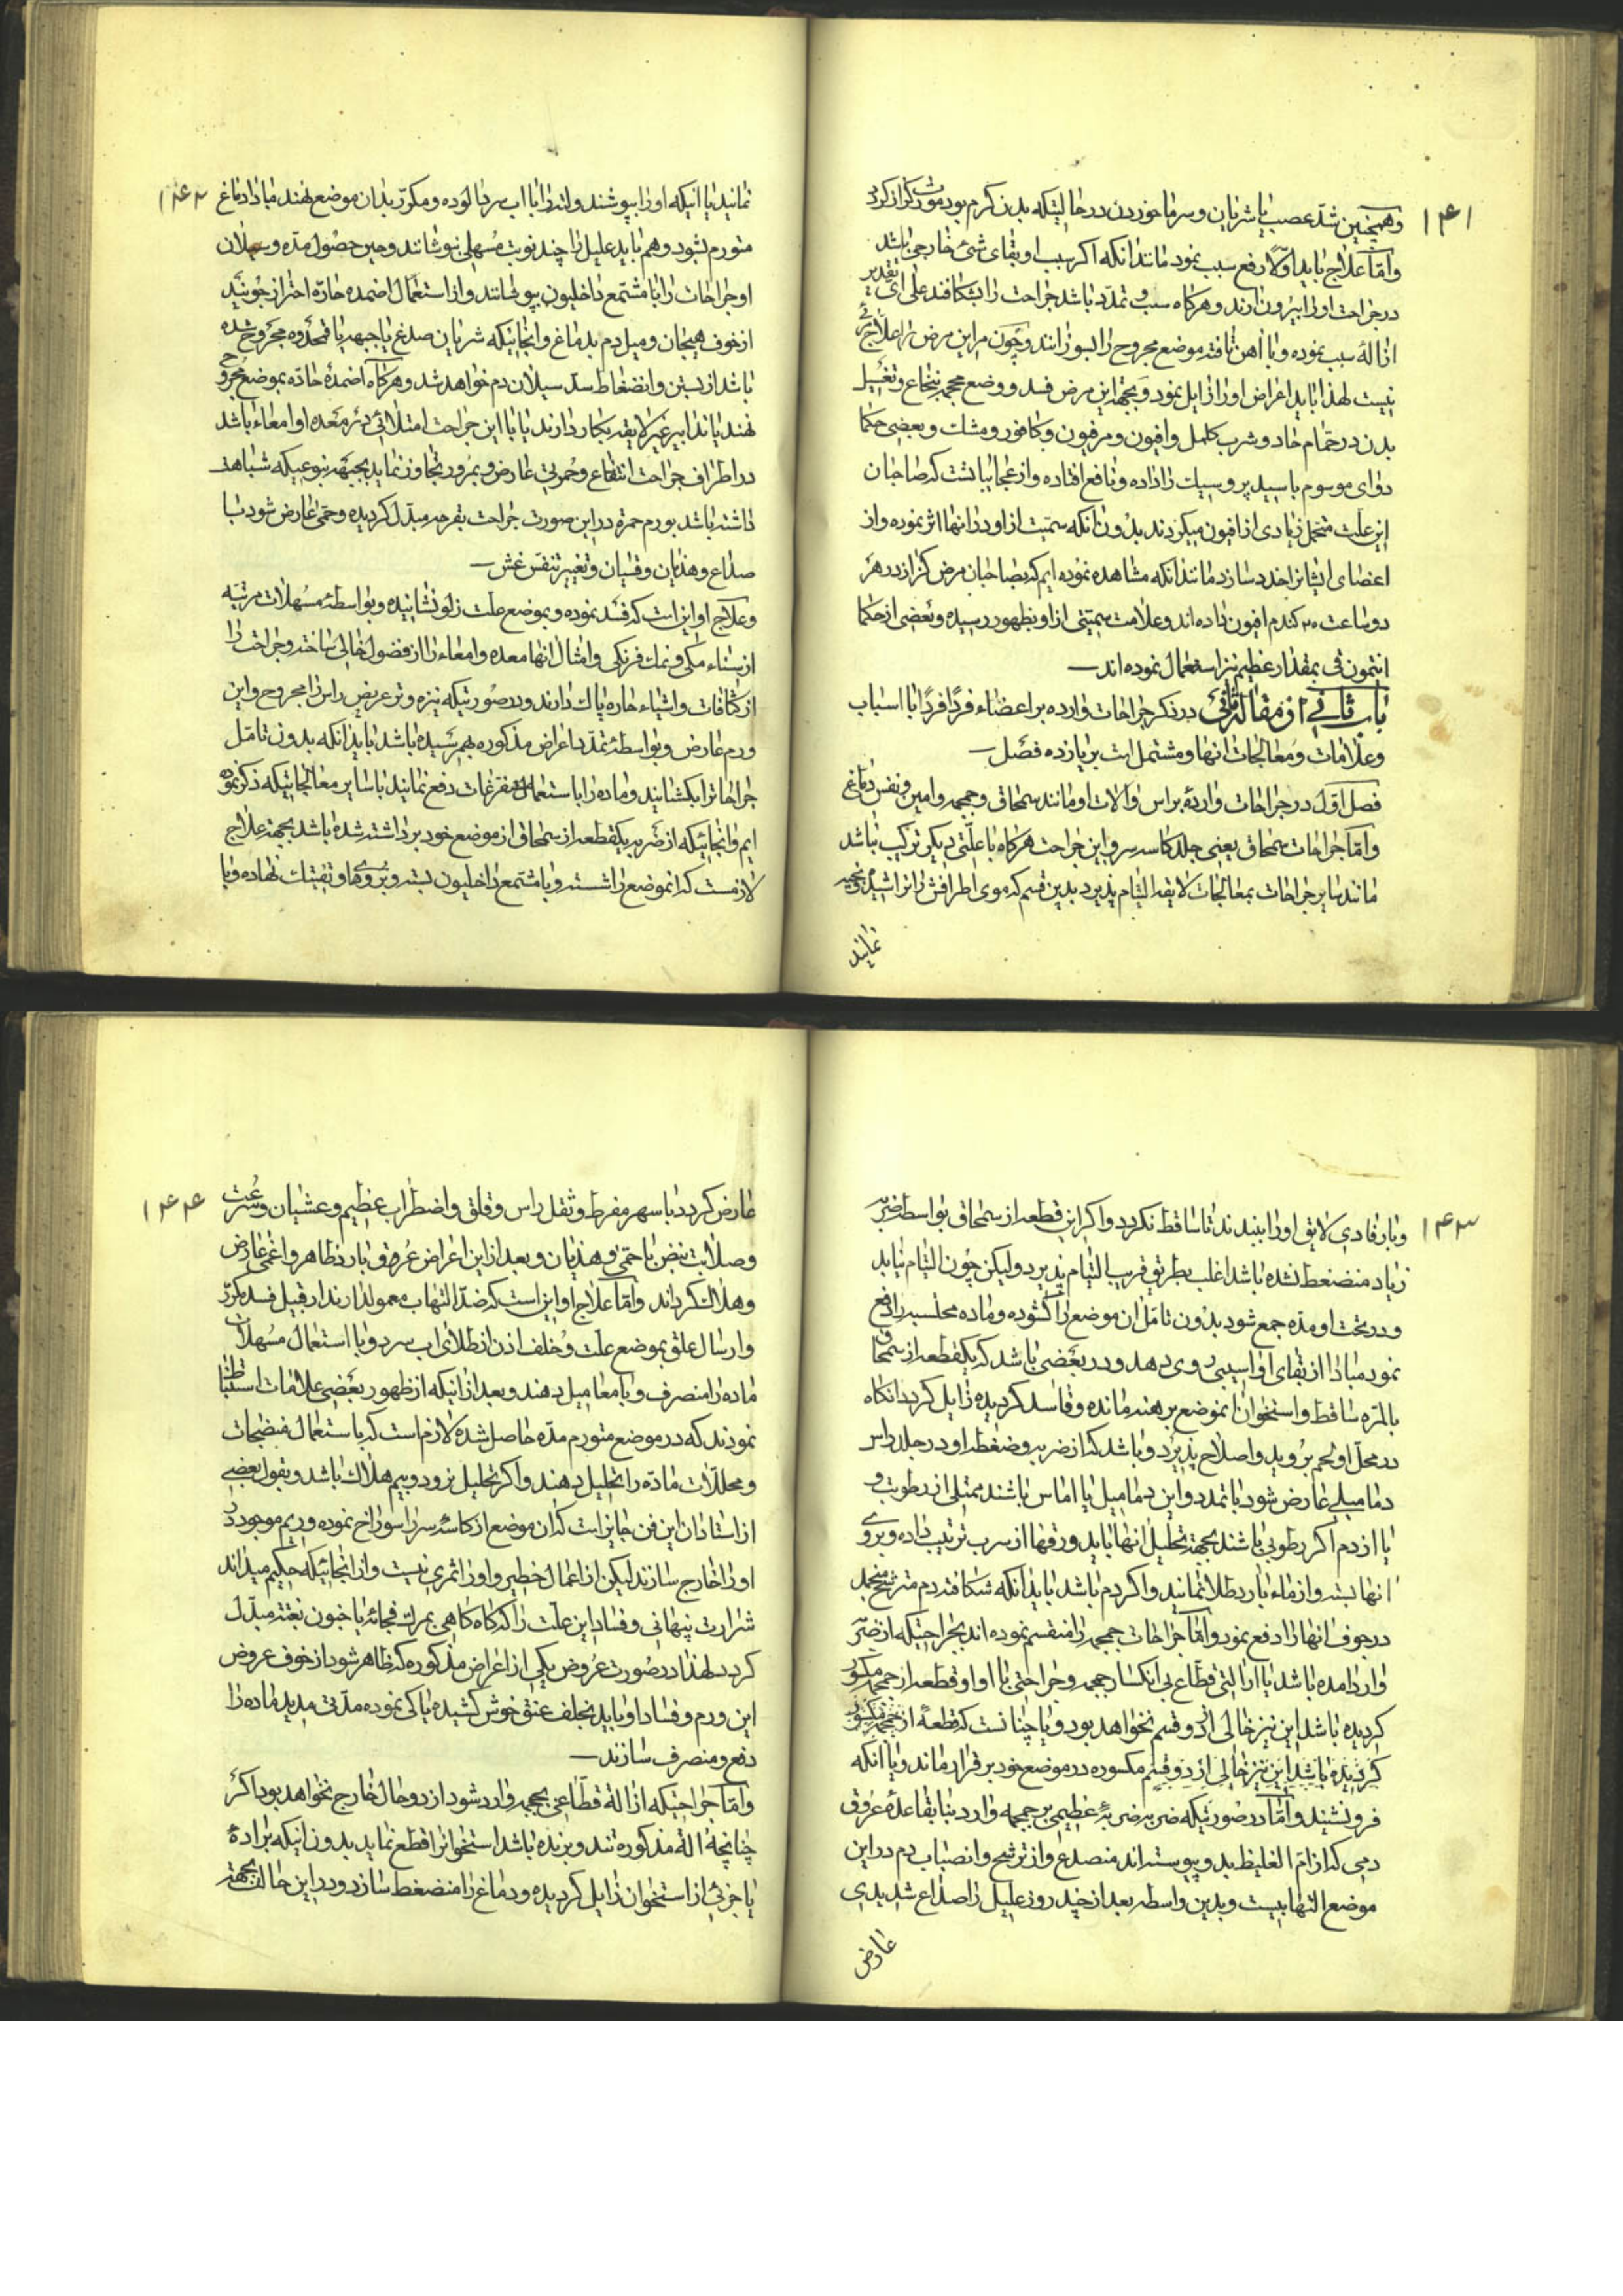 ۱۴۱
و همچنین شدّ عصب یا شریان و سرما خوردن در حالتیکه بدن کرم بود مورث کزاز کردد
و امّا علاج باید اوّلا رفع سبب نمود مانند انکه اکر سبب او بقای شئ خارجی باشد
در جراحت او را بیرون ارند و هرکاه سبب و تمدّد باشد جراحت را بشکافند علی ای تقدیر
ازالهٔ سبب نموده و با اهن تافته موضع مجروح را بسوزانند و چون مر این مرض را علاجی
نیست لهذا باید اعراض او را زایل نمود و بجهة این مرض فسد و وضع محجمه بنخاع و تغسیل
بدن در حمّام حاد و شرب کلمل و افیون و مرفیون و کافور و مشک و بعضی حکما
دوای موسوم باسید پروسیک را داده و نافع افتاده و از عجایبا تست که صاحبان
این علت متحمل زیادی از افیون میکردند بدون انکه سمّیت از او در انها اثر نموده و از
اعضای ایشانرا خدد سازد مانند انکه مشاهده نموده ایم که بصاحبان مرض کزاز در هر
دو ساعت ۲۰ کندم افیون داده اند و علامت سمّیتی از او بظهور رسیده و بعضی از حکما
انتیمون قی بمقدار عظیم نیز استعمال نموده اند
باب ثانی از مقاله ثانی در ذکر جراحات وارده بر اعضاء فردًا فردًا با اسباب
و علامات و معالجات انها و مشتمل است بر یازده فصل
فصل اوّل در جراحات واردهٔ براس و آلات او مانند سمحاق و جمجمه و امین و نفس دماغ
و امّا جراحات سمحاق یعنی جلد کاسه سر و این جراحت هرکاه با علّتی دیکر ترکیب نباشد
مانند سایر جراحات بمعالجات لایقه التیام پذیرد بدین قسم که موی اطرافش را تراشیده و بخیه
نمایند
۱۴۲
نمایند یا انیکه او را بپوشند و لته را با اب سرد الوده و مکرّر بدان موضع نهند مبادا دماغ
متورم بشود و هم باید علیل را چند نوبت مسهلی بنوشانند و حین حصول مدّه و سیلان
او جراحات را با مشتمع داخلیون بپوشانند و از استعمال اضمدهٔ حارّه احتراز جویند
از خوف هیجان و میل دم بدماغ و انجائیکه شریان صدغ یا جبهه یا قمحدوه مجروح شده
باشد از بستن و انضغاط سدّ سیلان دم خواهد شد و هرکاه اضمدهٔ حادّه بموضع مجروح
نهند یا تدابیر غیر لایقه بکار دارند یا با این جراحت امتلائی در معده او امعاء باشد
در اطراف جراحت انتفاع و حمرتی عارض و بمرور تجاوز نماید بجبهه بنوعیکه شباهت
داشته باشد بورم حمرة در این صورت جراحت بقرحه مبدّل کردیده و حمّی عارض شود با
صداع و هذیان و قشیان و تغییر تنفّس غش
و علاج او این است که فسد نموده و بموضع علت زلو نشانیده و بواسطهٔ مسهلات مرتبّه
از سناء مکی و نمک فرنکی و امثال انها معده و امعاء را از فضول خالی ساخته و جراحت را
از کثافات و اشیاء حاره پاک دارند و در صورتیکه نیزه و تر عریض راس را مجروح و این
ورم عارض و بواسطهٔ تمدّد اعراض مذکوره بهم رسیده باشد باید انکه بدون تامّل
جراحاترا بکشانید و ماده را باستعمال مستفرغات دفع نمانید با سایر معالجاتیکه ذکر نموده
ایم و انجائیکه از ضربه یکقطعه از سمحاق از موضع خود برداشته شده باشد بجهة علاج
لازمست که انموضع را شسته و با مشتمع داخلیون بسته و بر روی او تفتیک نهاده و با
۱۴۳
و با رفادی لایق او را ببندند تا ساقط نکردد و اکر این قطعه از سمحاق بواسطهٔ ضربه
زیاد منضغط نشده باشد اغلب بطریق قریب التیام پذیرد و لیکن چون التیام نیابد
و در تحت او مدّه جمع شود بدون تامّل ان موضع را کشوده و مادّه محتبسه را دفع
نمود مبادا از بقای او اسیبی روی دهد و در بعضی باشد که یکقطعه از سمحاق
بالمرّه ساقط و استخوان انموضع برهنه مانده و فاسد کردیده زایل کردد انکاه
در محل او لحم بروید و اصلاح پذیرد و باشد که از ضربه و ضغطه او در جلد راس
دمامیلی عارض شود با تمدد و این دمامیل یا اماس باشند ممتلی از رطوبت و
یا از دم اکر رطوبی باشند بجهة تحلیل انها باید ورقها از سرب ترتیب داده و بر روی
انها بسته و از ماء بارد طلا نمایند و اکر دم باشد باید انکه شکافته دم مترشح منجمد
در جوف انها را دفع نمود و امّا جراحات جمجمه را منقسم نموده اند بجراحتیکه از ضربه
وارد امده باشد یا از التی قطّاع بی انکسار جمجمه و جراحتی با او او قطعه از جمجمه مکسور
کردیده باشد این نیز خالی از دو قسم نخواهد بود و یا چنانست که قطعهٔ از جمجمه مکسور
کردیده باشد این نیز خالی از دو قسم مکسوره در موضع خود برقرار ماند و یا انکه
فرو نشیند و امّا در صورتیکه ضربه ضربهٔ عظیمی بر جمجمه وارد بنا بقاعدهٔ عروق
دمی که از امّ الغلیظ بدو پیوسته اند منصدع و از ترشح و انصباب دم در این
موضع التهابیست و بدین واسطه بعد از چند روز علیل را صداع شدیدی
عارض
۱۴۴
عارض کردد با سهر مفرط و ثقل راس و قلق و اضطراب عظیم و غشیان و سرعت
و صلابت نبض با حمّی و هذیان و بعد از این اعراض عرق بارد ظاهر و اغمی عارض
و هلاک کرداند و امّا علاج او این است که ضدّ التهاب معمول دارند از قبیل فسد مکرّر
و ارسال علق بموضع علت و خلف اذن از طلای اب سرد و با استعمال مسهلات
ماده را منصرف و با معا میل دهند و بعد از انیکه از ظهور بعضی علامات استنباط
نمودند که در موضع متورم مدّه حاصل شده لازم است که باستعمال منضجات
و محللات مادّه را تحلیل دهند و اکر تحلیل نرود و بیم هلاک باشد و بقول بعضی
از استادان این فن جایز است که ان موضع از کاسهٔ سر را سوراخ نموده و ریم موجود
او را خارج سازند لیکن از اعمال خطیر و او را ثمری نیست و از انجائیکه حکیم میداند
شرارت پنهانی و فساد این علّت را که کاه کاهی بمرک فجائه یا جنون بغتة مبدّل
کردد لهذا در صورت عروض یکی از اعراض مذکوره که ظاهر شود از خوف عروض
این ورم و فساد او باید بخلف عنق خوش کشیده یا کی نموده مدّتی مدید ماده را
دفع و منصرف سازند
و امّا جراحتیکه از الة قطّاعی بجمجمه وارد شود از دو حال خارج نخواهد بود اکر
چنانچه الهٔ مذکوره تند و برنده باشد استخوانرا قطع نماید بدون انیکه برادهٔ
یا جزئی از استخوان زایل کردیده و دماغ را منضغط سازد و در این حالت بجهة